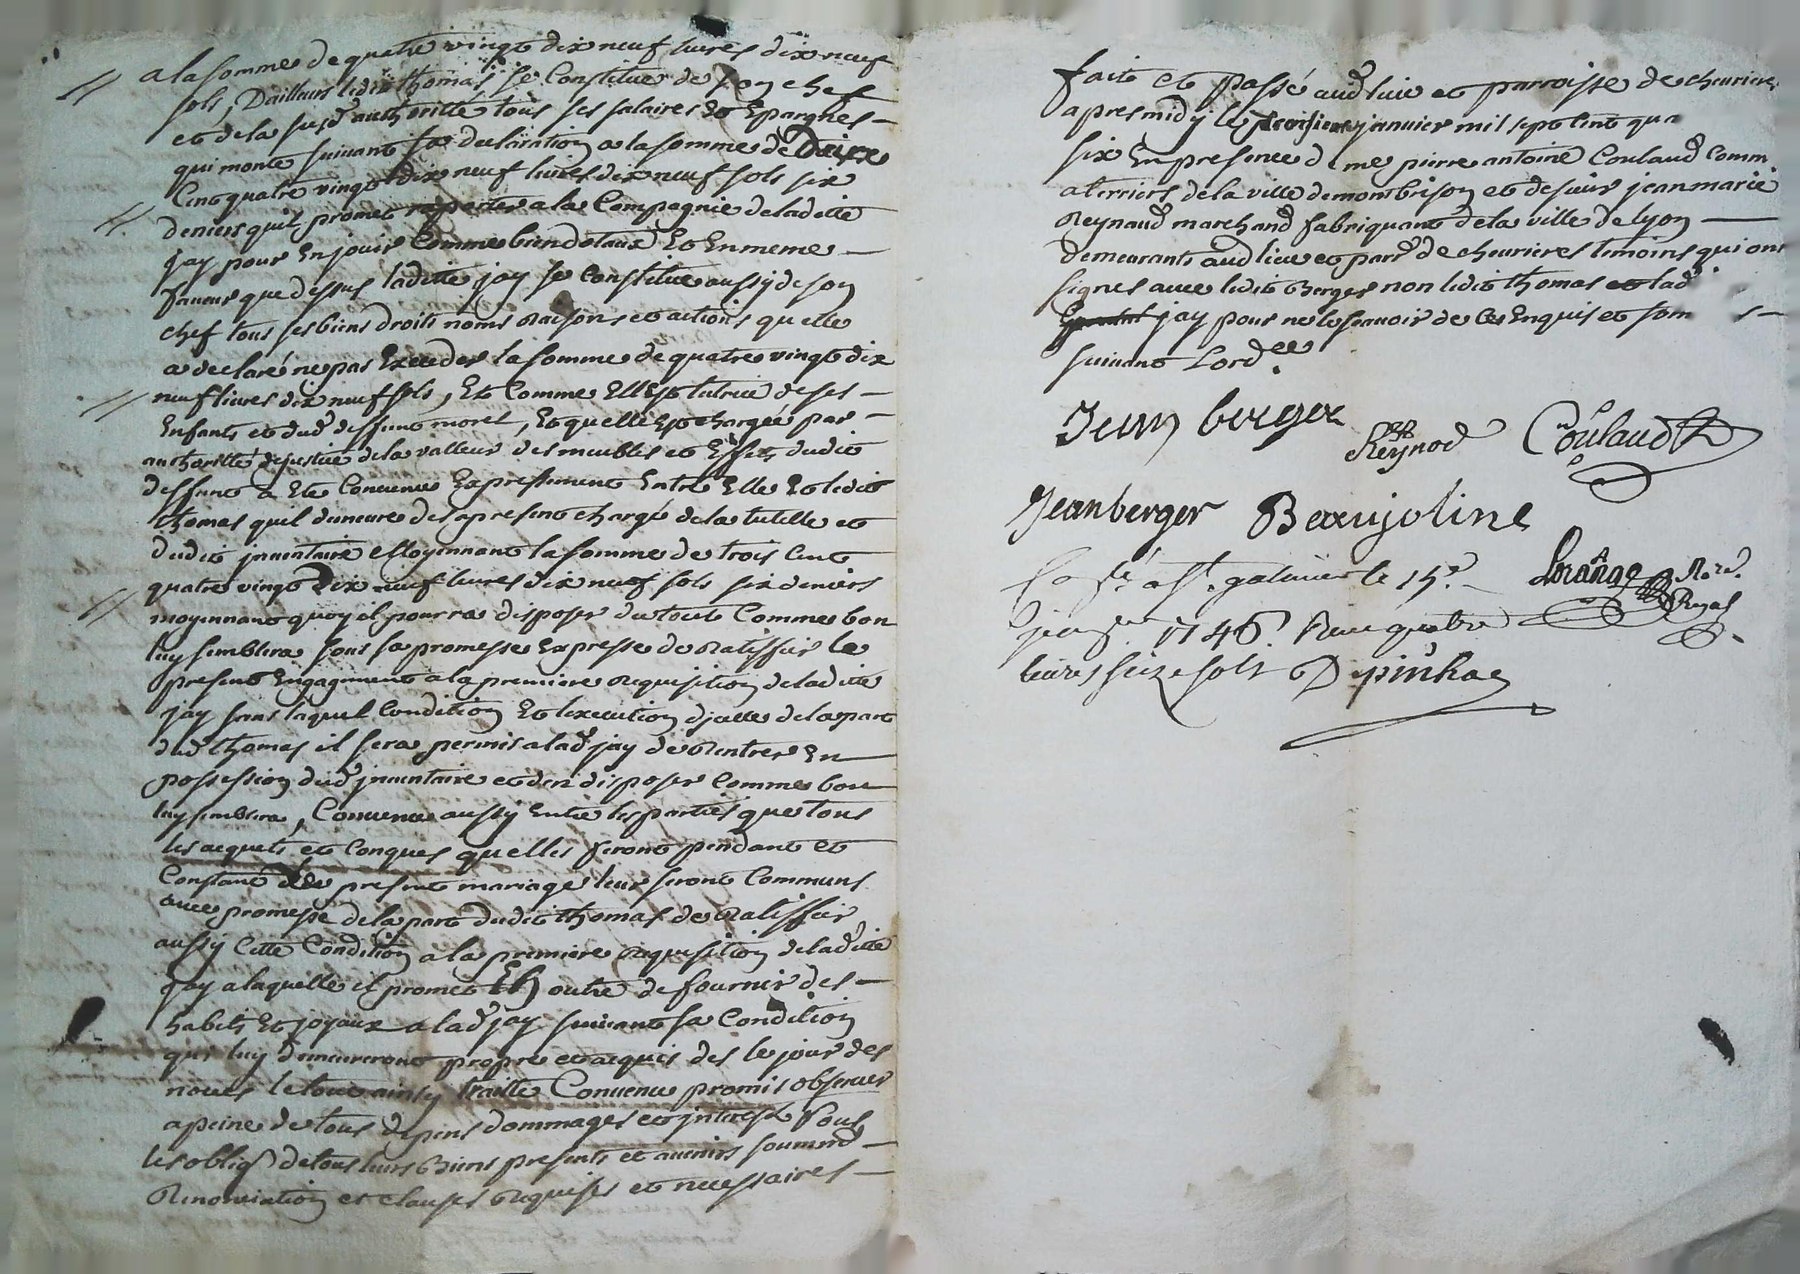 a la somme de quatre vingt dix neuf livres dix neuf
sols, Dailleurs ledit thomas se Constitue de son chef
et de la susd authorité tous ses salaires et Epargnes
qui monte suivant sa declaration a la somme de Deux
Cent quatre vingt dix neuf livres dix neuf sols six
deniers quil promet raporter a la Compagnie de laditte
jay pour En jouir Comme bien dotaux Et En meme
faveur que dessus laditte jay se Constitue aussy de son
chef tous ses biens droits noms Raisons et actions quelle
a declaré ne pas Exceder la somme de quatre vingt dix
neuf livres dix neuf sols, Et Comme Ell Est tutrice de ses
Enfants et dud deffunt morel, Et quelle Est chargée par
authorité de justice de la valleur des meubles et Effets dudit
deffunt a Eté Convenu Expressement Entre Elle Et ledit
thomas quil demeure des apresent chargé de la tutelle et
dudit inventaire Moyennant la somme de trois Cent
quatre vingt Dix neuf livres dix neuf sols six deniers
moyennant quoy il pourra disposer du tout Comme bon
luy semblera sous sa promesse Expresse de Ratiffier le
present Engagement a la premiere Requisition de laditte
jay sans laquel Condition Et Execution dicelle de la part
dud thomas il sera permis a lad jay de Rentrer En
possession dud inventaire et den disposer Comme bon
luy semblera, Convenu aussy Entre les parties que tous
les acquets et Conques quelles feront pendant et
Constant le present mariage leur seront Communs
avec promesse de la part dudit thomas de Ratiffier
aussy Cette Condition a la premiere Requisition de laditte
jay a laquelle il promet En outre de fournir des
habits Et joyaux a lad jay suivant sa Condition
qui luy demeureront propre et acquis des le jour des
noces le tout ainsy traitté Convenu promis observer
a peine de tous depens dommages et interest sous
les oblig de tous leurs Biens presents et avenirs soummd
Renonciation et clauses Requises et necessaires
fait et passé aud lieu et parroisse de chevriere
apres midy le troisieme janvier mil sept cent qua
six En presence de me pierre antoine Coulaud Comm
a terriers de la ville de montbrison et de sieur jean marie
Reynaud marchand fabriquant de la ville de lyon
demeurants aud lieu et parr de chevrieres temoins qui ont
signes avec ledit Berger non ledit thomas et lad
jay pour ne le scavoir de Ce Enquis et som s
suivant Lordce.
Jean berger
Reynod
Coulaud
Jean berger
Beaujoline
Lorange
N. re.
Royal
a St. galmier le 15e
1746. Receu quatre
livres seize sols Depinhac